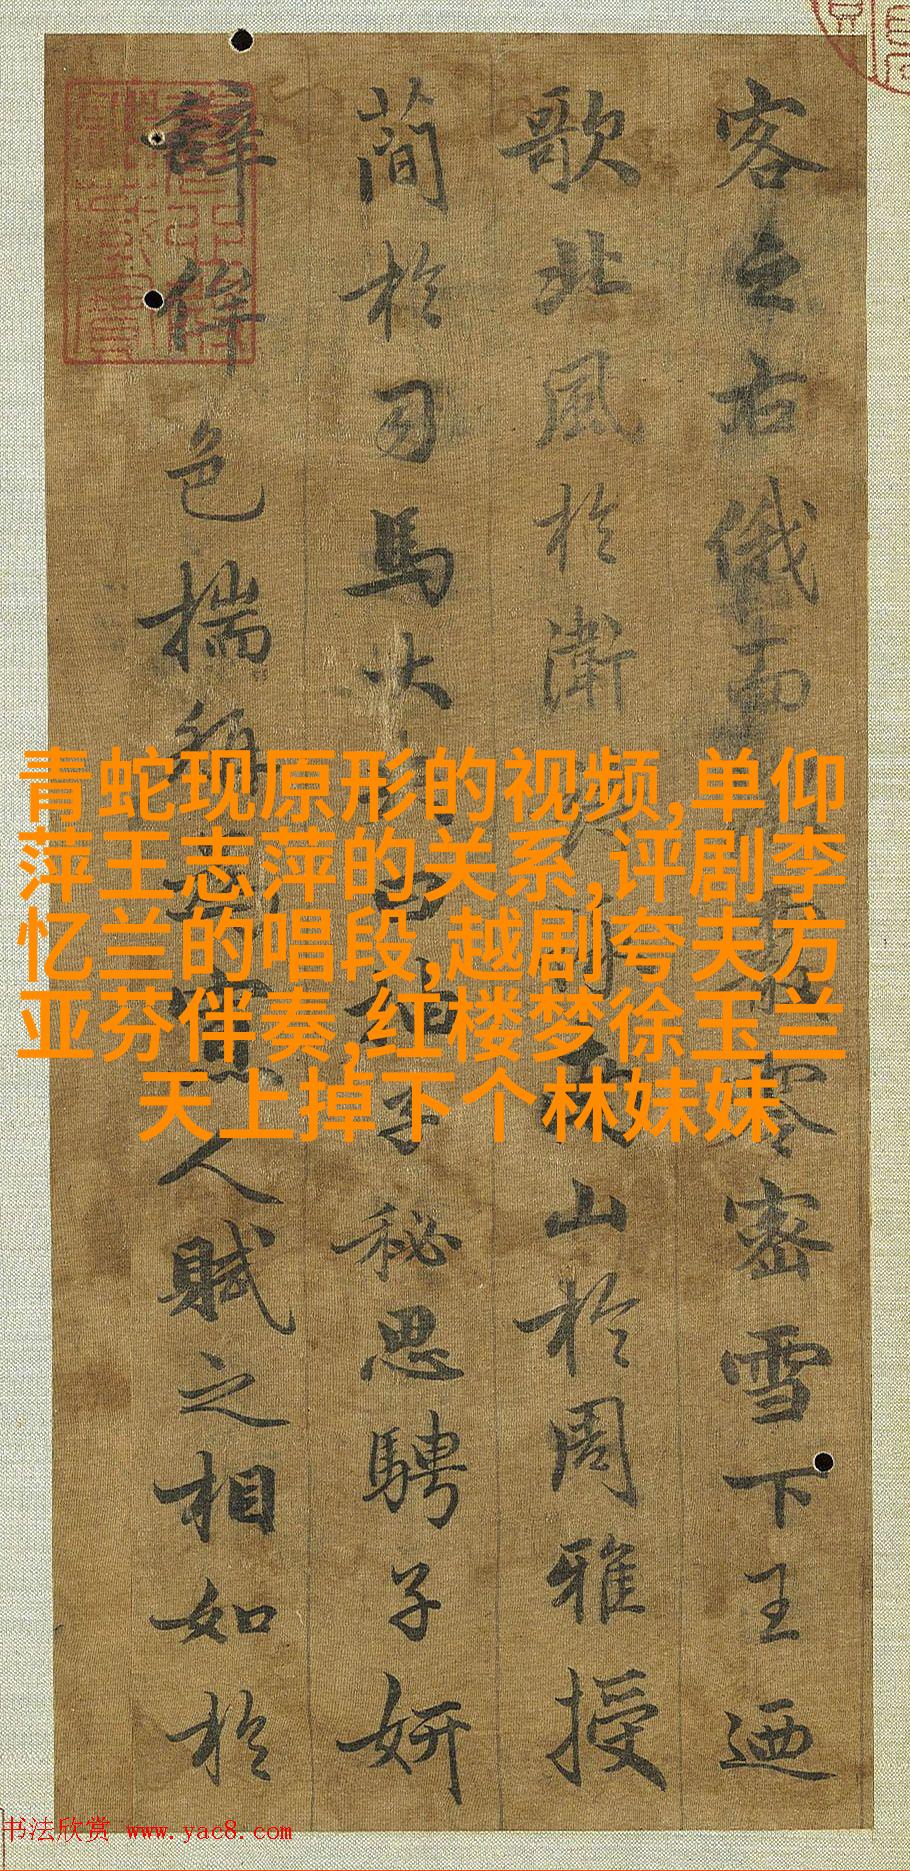 客之右俄而零密雪下王迺
歌北風於衛山於周雅授
簡於司馬大抽子秘思騁子妍
辭侔色揣稱寡人賦之相如於
青蛇现原形的视频,单仰
萍王志萍的关系,评剧李
忆兰的唱段,越剧夸夫方
亚芬伴奏,红楼梦徐玉兰
天上掉下个林妹妹
书法欣赏 www.yac8.com